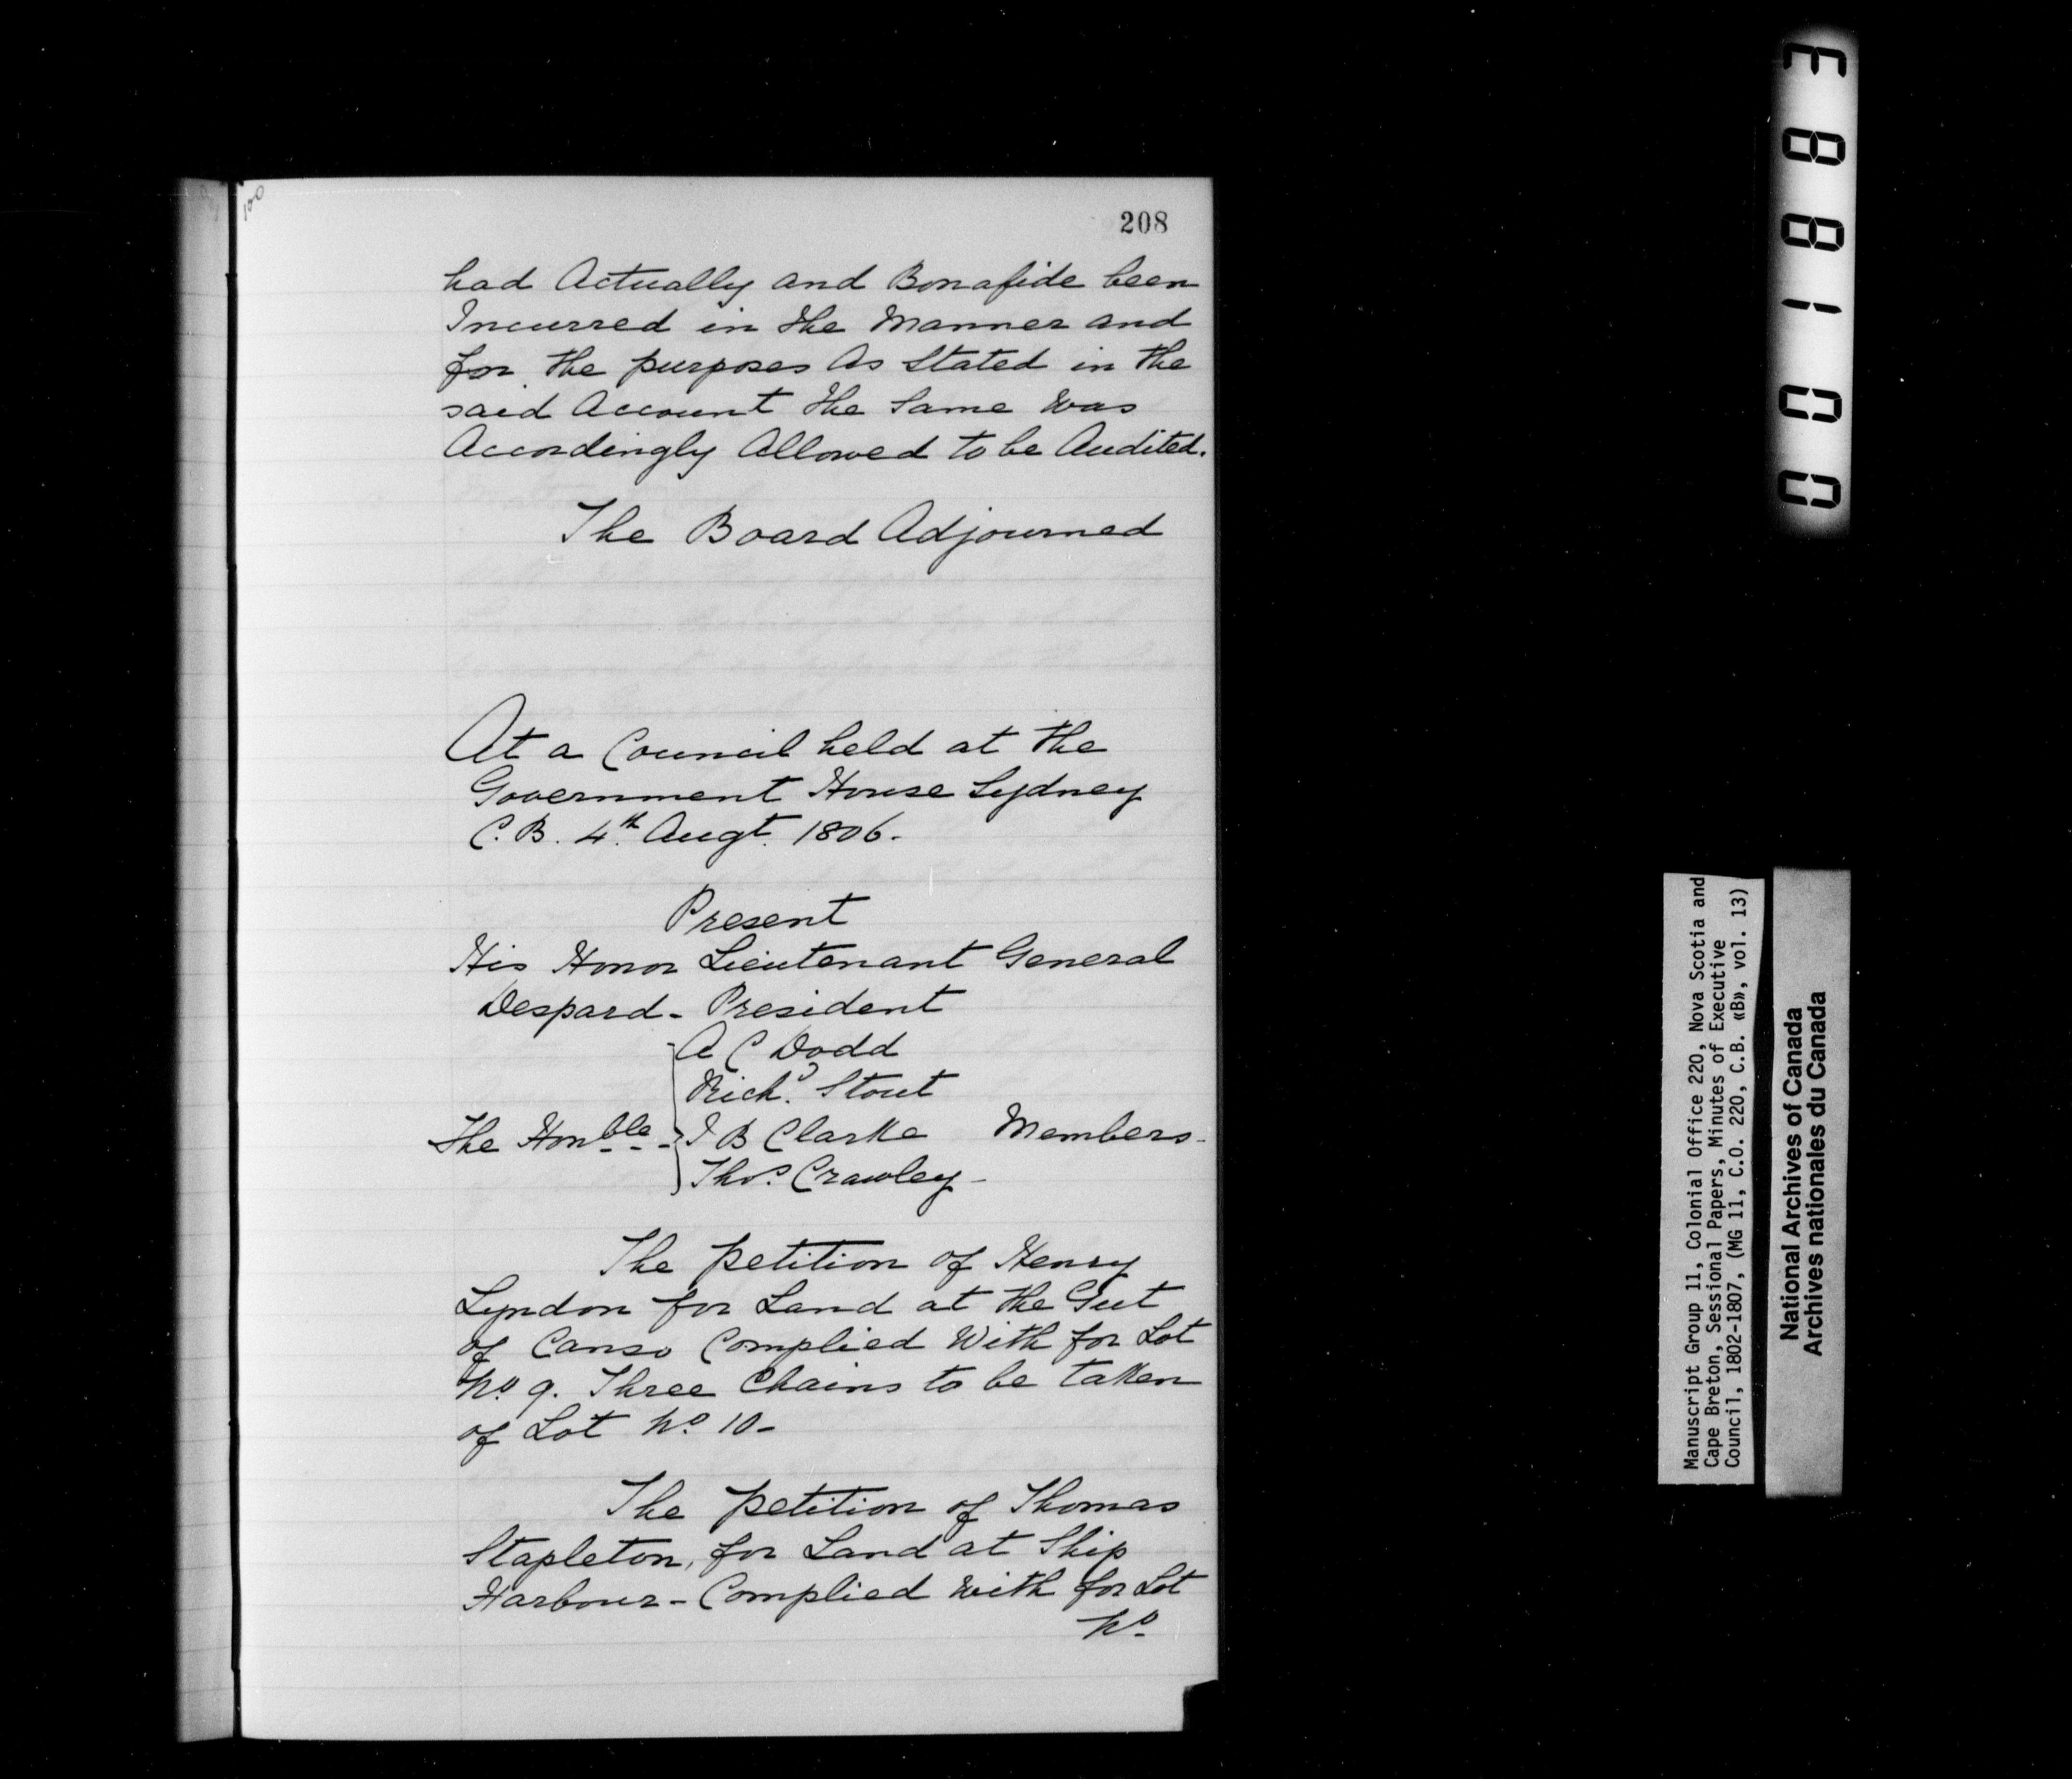 100
208
had Actually and Bonafide been
Incurred in the Manner and
for the purposes As Stated in the
said Account the Same Was
Accordingly Allowed to be Audited.
The Board Adjourned
At a Council held at the
Government House Sydney
C.B. 4th Augt. 1806.
Present
His Honor Lieutenant General
Despard - President
A C Dodd
Richd. Stout
The Honble - I B Clarke Members -
Thos. Crawley -
The petition of Henry
Lyndon for Land at the Gut
of Canso Complied With for Lot
No. 9. Three Chains to be taken
of Lot No. 10 -
The petition of Thomas
Stapleton, for Land at Ship
Harbour - Complied with for Lot
No.
001883
Manuscript Group 11, Colonial Office 220, Nova Scotia and
Cape Breton, Sessional Papers, Minutes of Executive
Council, 1802-1807, (MG 11, C.O. 220, C.B. «B», vol. 13)
National Archives of Canada
Archives nationales du Canada